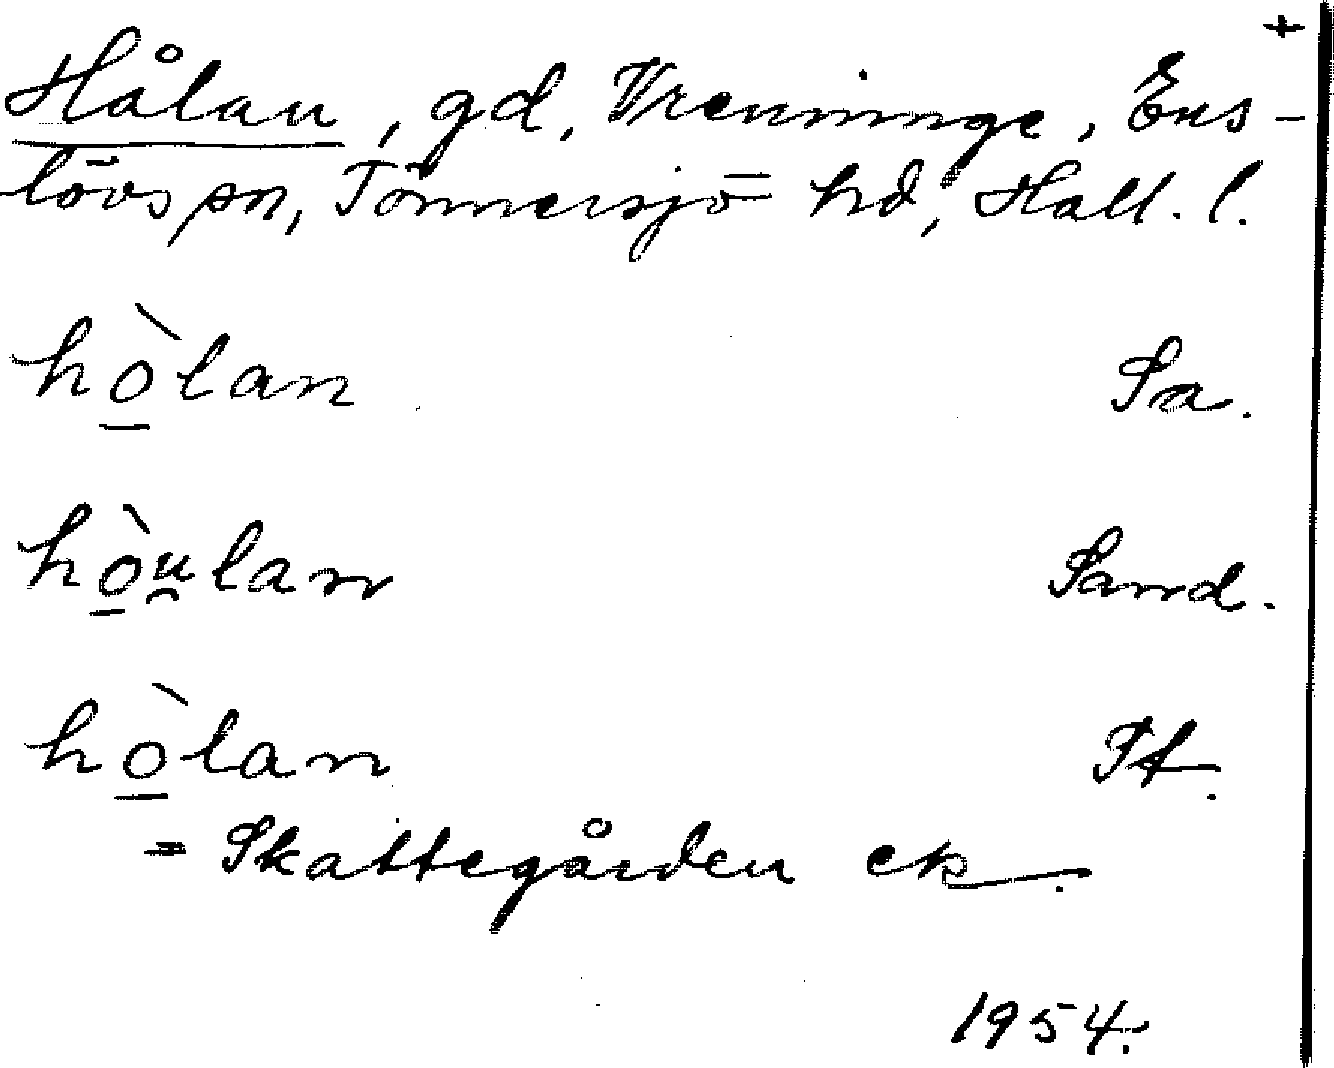 +
Hålan, gd, Vrenninge, Ens-
lövs sn, Tönnersjö hd, Hall. l.
hò̱lan Sa.
hò̱u̯lan Sand.
hò̱lan
= Skattegården ek.
1954.